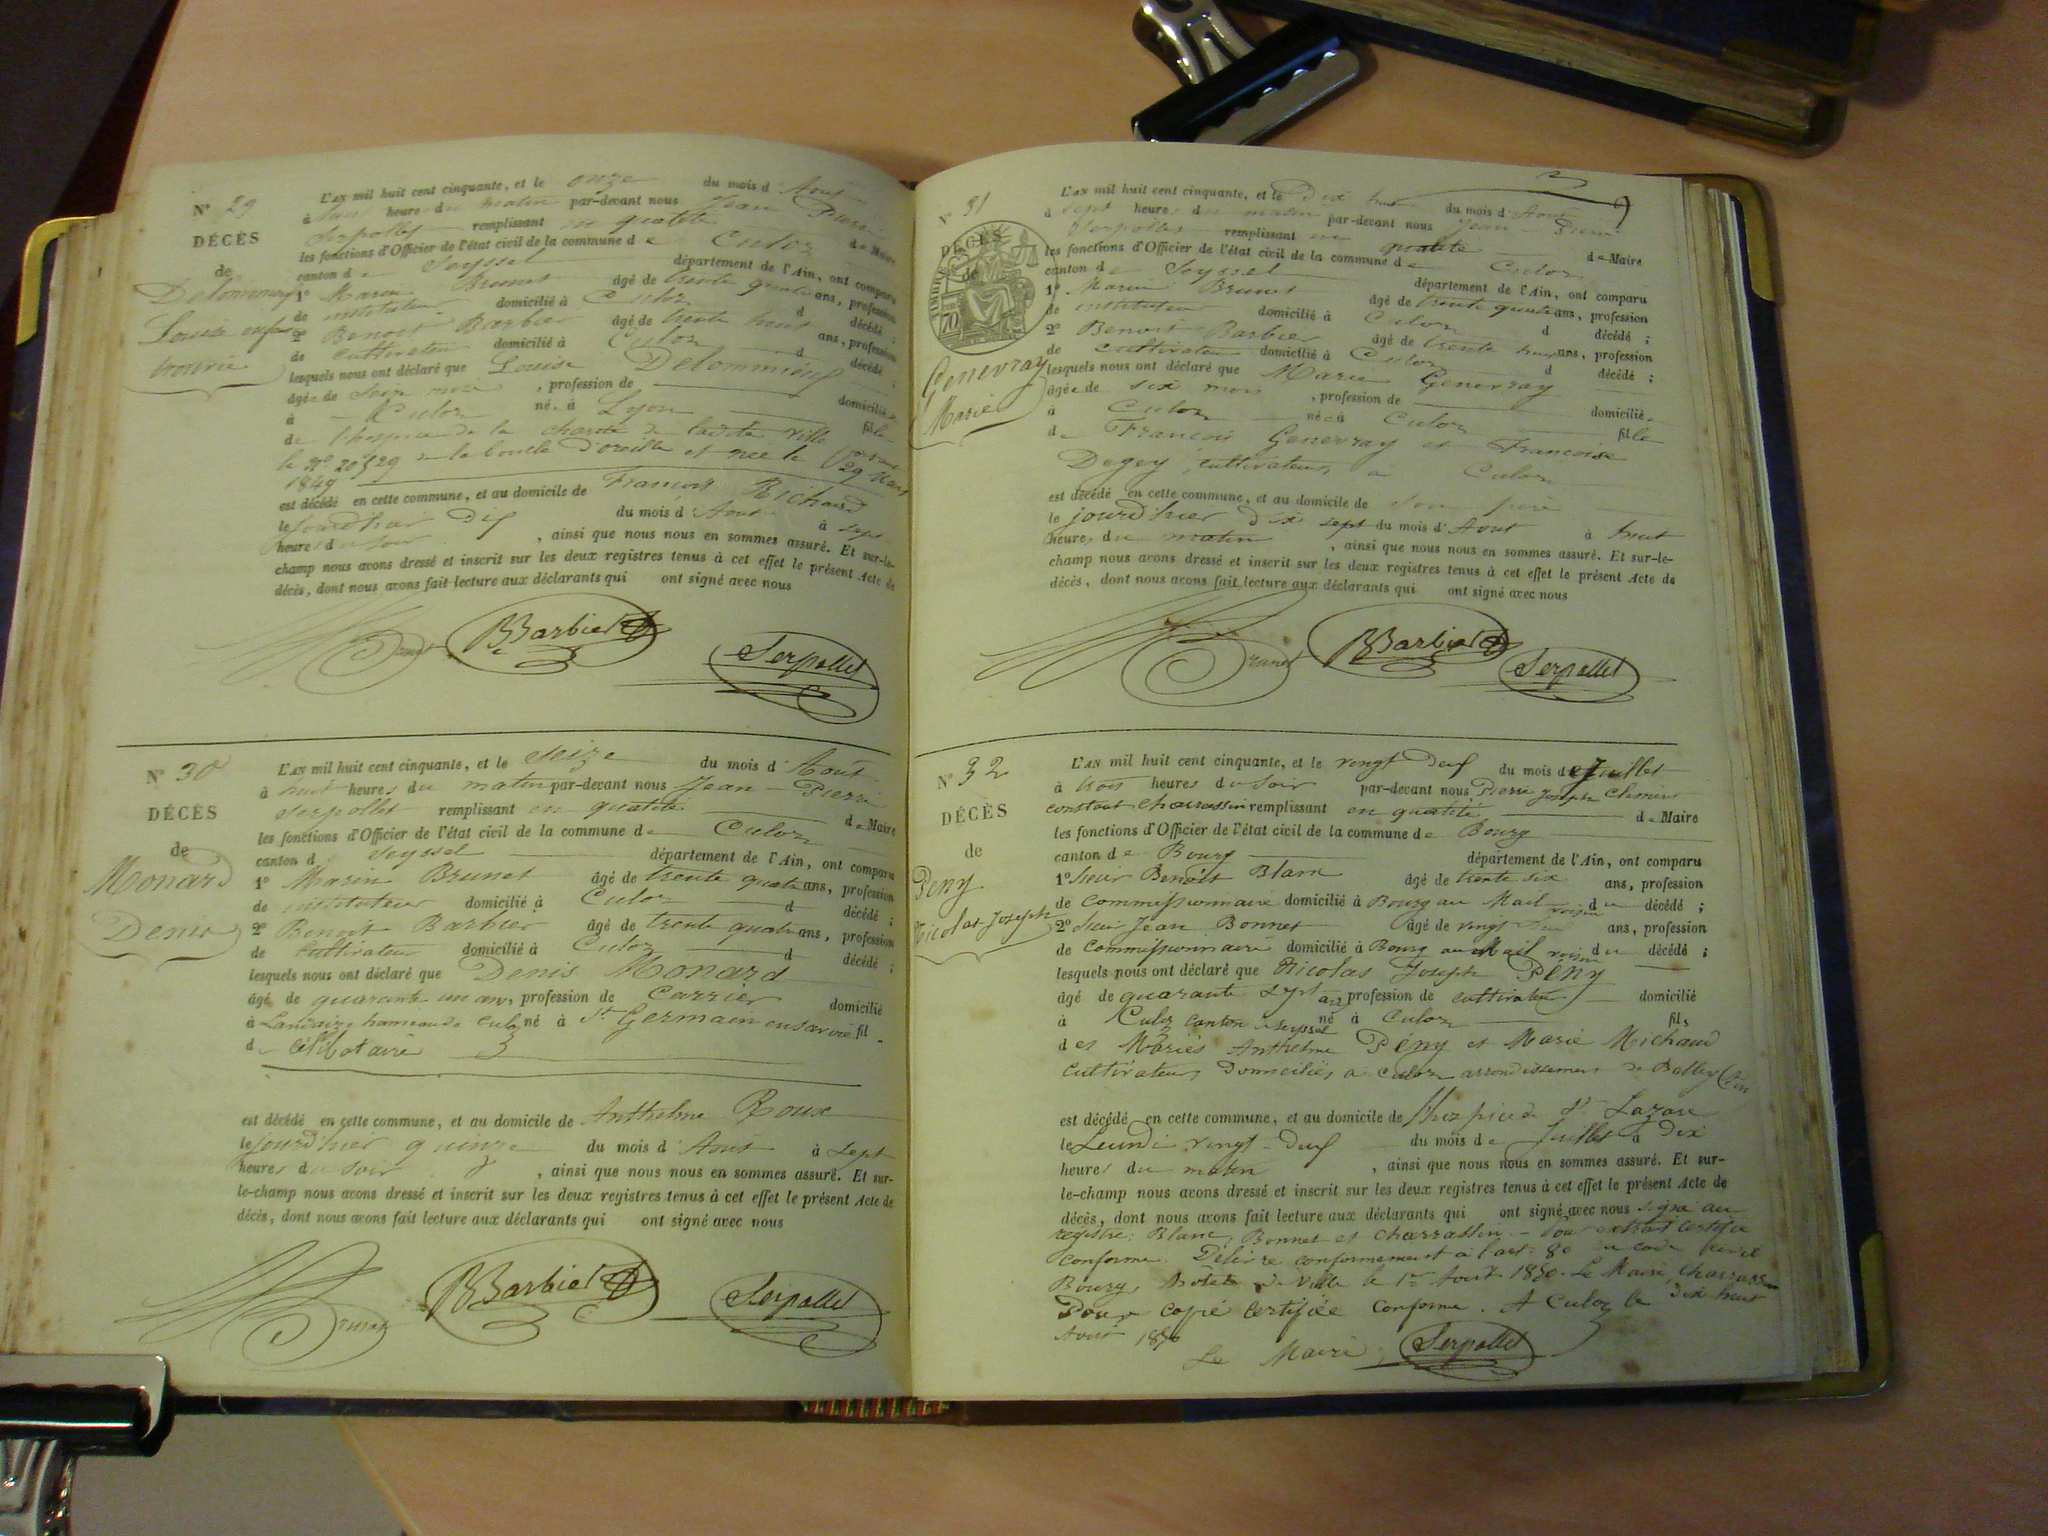 N° 29
DÉCÈS
de
Delommieux
Louise enfant
trouvée
L'AN mil huit cent cinquante, et le onze du mois d'Aout
à huit heures du matin par-devant nous Jean Pierre
Serpollet remplissant en qualité de Maire
les fonctions d'Officier de l'état civil de la commune de Culoz
canton de Seyssel département de l'Ain, ont comparu
1° Marin Brunet âgé de trente quatre ans, profession
de instituteur domicilié à Culoz d décédé ;
2° Benoit Barbier âgé de trente huit ans, profession
de cultivateur domicilié à Culoz d décédé ;
lesquels nous ont déclaré que Louise
âgée de mois, profession de domiciliée
à Culoz née à Lyon fille
de l'hospice de la charité de ladite ville
le n° 20529 à la boucle d'oreille et née le 29 Mars
1849
est décédé en cette commune, et au domicile de François Richard
le jourd'hier Dix du mois d'Aout à sept
heures du soir, ainsi que nous nous en sommes assuré. Et sur-le-
champ nous avons dressé et inscrit sur les deux registres tenus à cet effet le présent Acte de
décès, dont nous avons fait lecture aux déclarants qui ont signé avec nous
Brunet BBarbier Serpollet
N° 30
DÉCÈS
de
Monard
Denis
L'AN mil huit cent cinquante, et le seize du mois d'Aout
à huit heures du matin par-devant nous Jean-Pierre
Serpollet remplissant en qualité de Maire
les fonctions d'Officier de l'état civil de la commune de Culoz
canton d Seyssel département de l'Ain, ont comparu
1° Marin Brunet âgé de trente quatre ans, profession
de instituteur domicilié à Culoz d décédé ;
2° Benoit Barbier âgé de trente quatre ans, profession
de cultivateur domicilié à Culoz d décédé ;
lesquels nous ont déclaré que Denis Monard
âgé de quarante un ans, profession de carrier domicilié
à hameau de Culoz né à St Germain en savoie fil
de célibataire
est décédé en cette commune, et au domicile de Anthelme Roux
le jourd'hier quinze du mois d'Aout à sept
heures du soir, ainsi que nous nous en sommes assuré. Et sur-
le-champ nous avons dressé et inscrit sur les deux registres tenus à cet effet le présent Acte de
décès, dont nous avons fait lecture aux déclarants qui ont signé avec nous
Brunet BBarbier Serpollet
N° 31
DÉCÈS
de
TIMBRE
70
Genevray
Marie
L'AN mil huit cent cinquante, et le Dix huit du mois d'Aout
à sept heures du matin par-devant nous Jean-Pierre
Serpollet remplissant en qualité de Maire
les fonctions d'Officier de l'état civil de la commune de Culoz
canton de Seyssel département de l'Ain, ont comparu
1° Marin Brunet âgé de trente quatre ans, profession
de instituteur domicilié à Culoz d décédé ;
2° Benoit Barbier âgé de trente huit ans, profession
de cultivateur domicilié à Culoz d décédé ;
lesquels nous ont déclaré que Marie Genevray
âgée de six mois, profession de domiciliée
à Culoz née à Culoz fille
de François Genevray et Françoise
Degey cultivateurs à Culoz
est décédé en cette commune, et au domicile de son père
le jourd'hier dix sept du mois d'Aout à huit
heures du matin, ainsi que nous nous en sommes assuré. Et sur-le-
champ nous avons dressé et inscrit sur les deux registres tenus à cet effet le présent Acte de
décès, dont nous avons fait lecture aux déclarants qui ont signé avec nous
Brunet BBarbier Serpollet
N° 32
DÉCÈS
de
Pény
Nicolas Joseph
L'AN mil huit cent cinquante, et le vingt Deux du mois de Juillet
à trois heures du soir par-devant nous Pierre Joseph
constant Charrassin remplissant en qualité de Maire
les fonctions d'Officier de l'état civil de la commune de Bourg
canton de Bourg département de l'Ain, ont comparu
1° Sieur Benoit Blanc âgé de trente six ans, profession
de Commissionnaire domicilié à Bourg au Mail voisin du décédé ;
2° Sieur Jean Bonnet âgé de vingt ans, profession
de Commissionnaire domicilié à Bourg au Mail voisin du décédé ;
lesquels nous ont déclaré que Nicolas Joseph Pény
âgé de quarante sept ans profession de cultivateur domicilié
à Culoz canton de Seyssel né à Culoz fils
des Mariés Anthelme Pény et Marie Michaud
cultivateurs Domiciliés à Culoz arrondissement de Belley (Ain
est décédé en cette commune, et au domicile de l'hospice de St Lazare
le Lundi vingt-Deux du mois de Juillet à Dix
heures du matin, ainsi que nous nous en sommes assuré. Et sur-
le-champ nous avons dressé et inscrit sur les deux registres tenus à cet effet le présent Acte de
décès, dont nous avons fait lecture aux déclarants qui ont signé avec nous signé au
registre : Blanc, Bonnet et Charrassin. – Pour extrait certifié
conforme. Délivré conformément à l'art. 80 du code civil
Bourg, hôtel de Ville le 1er Aout 1850. Le Maire Charrassin
Pour copie certifiée conforme. A Culoz le Dix huit
Aout 1850
Le Maire, Serpollet